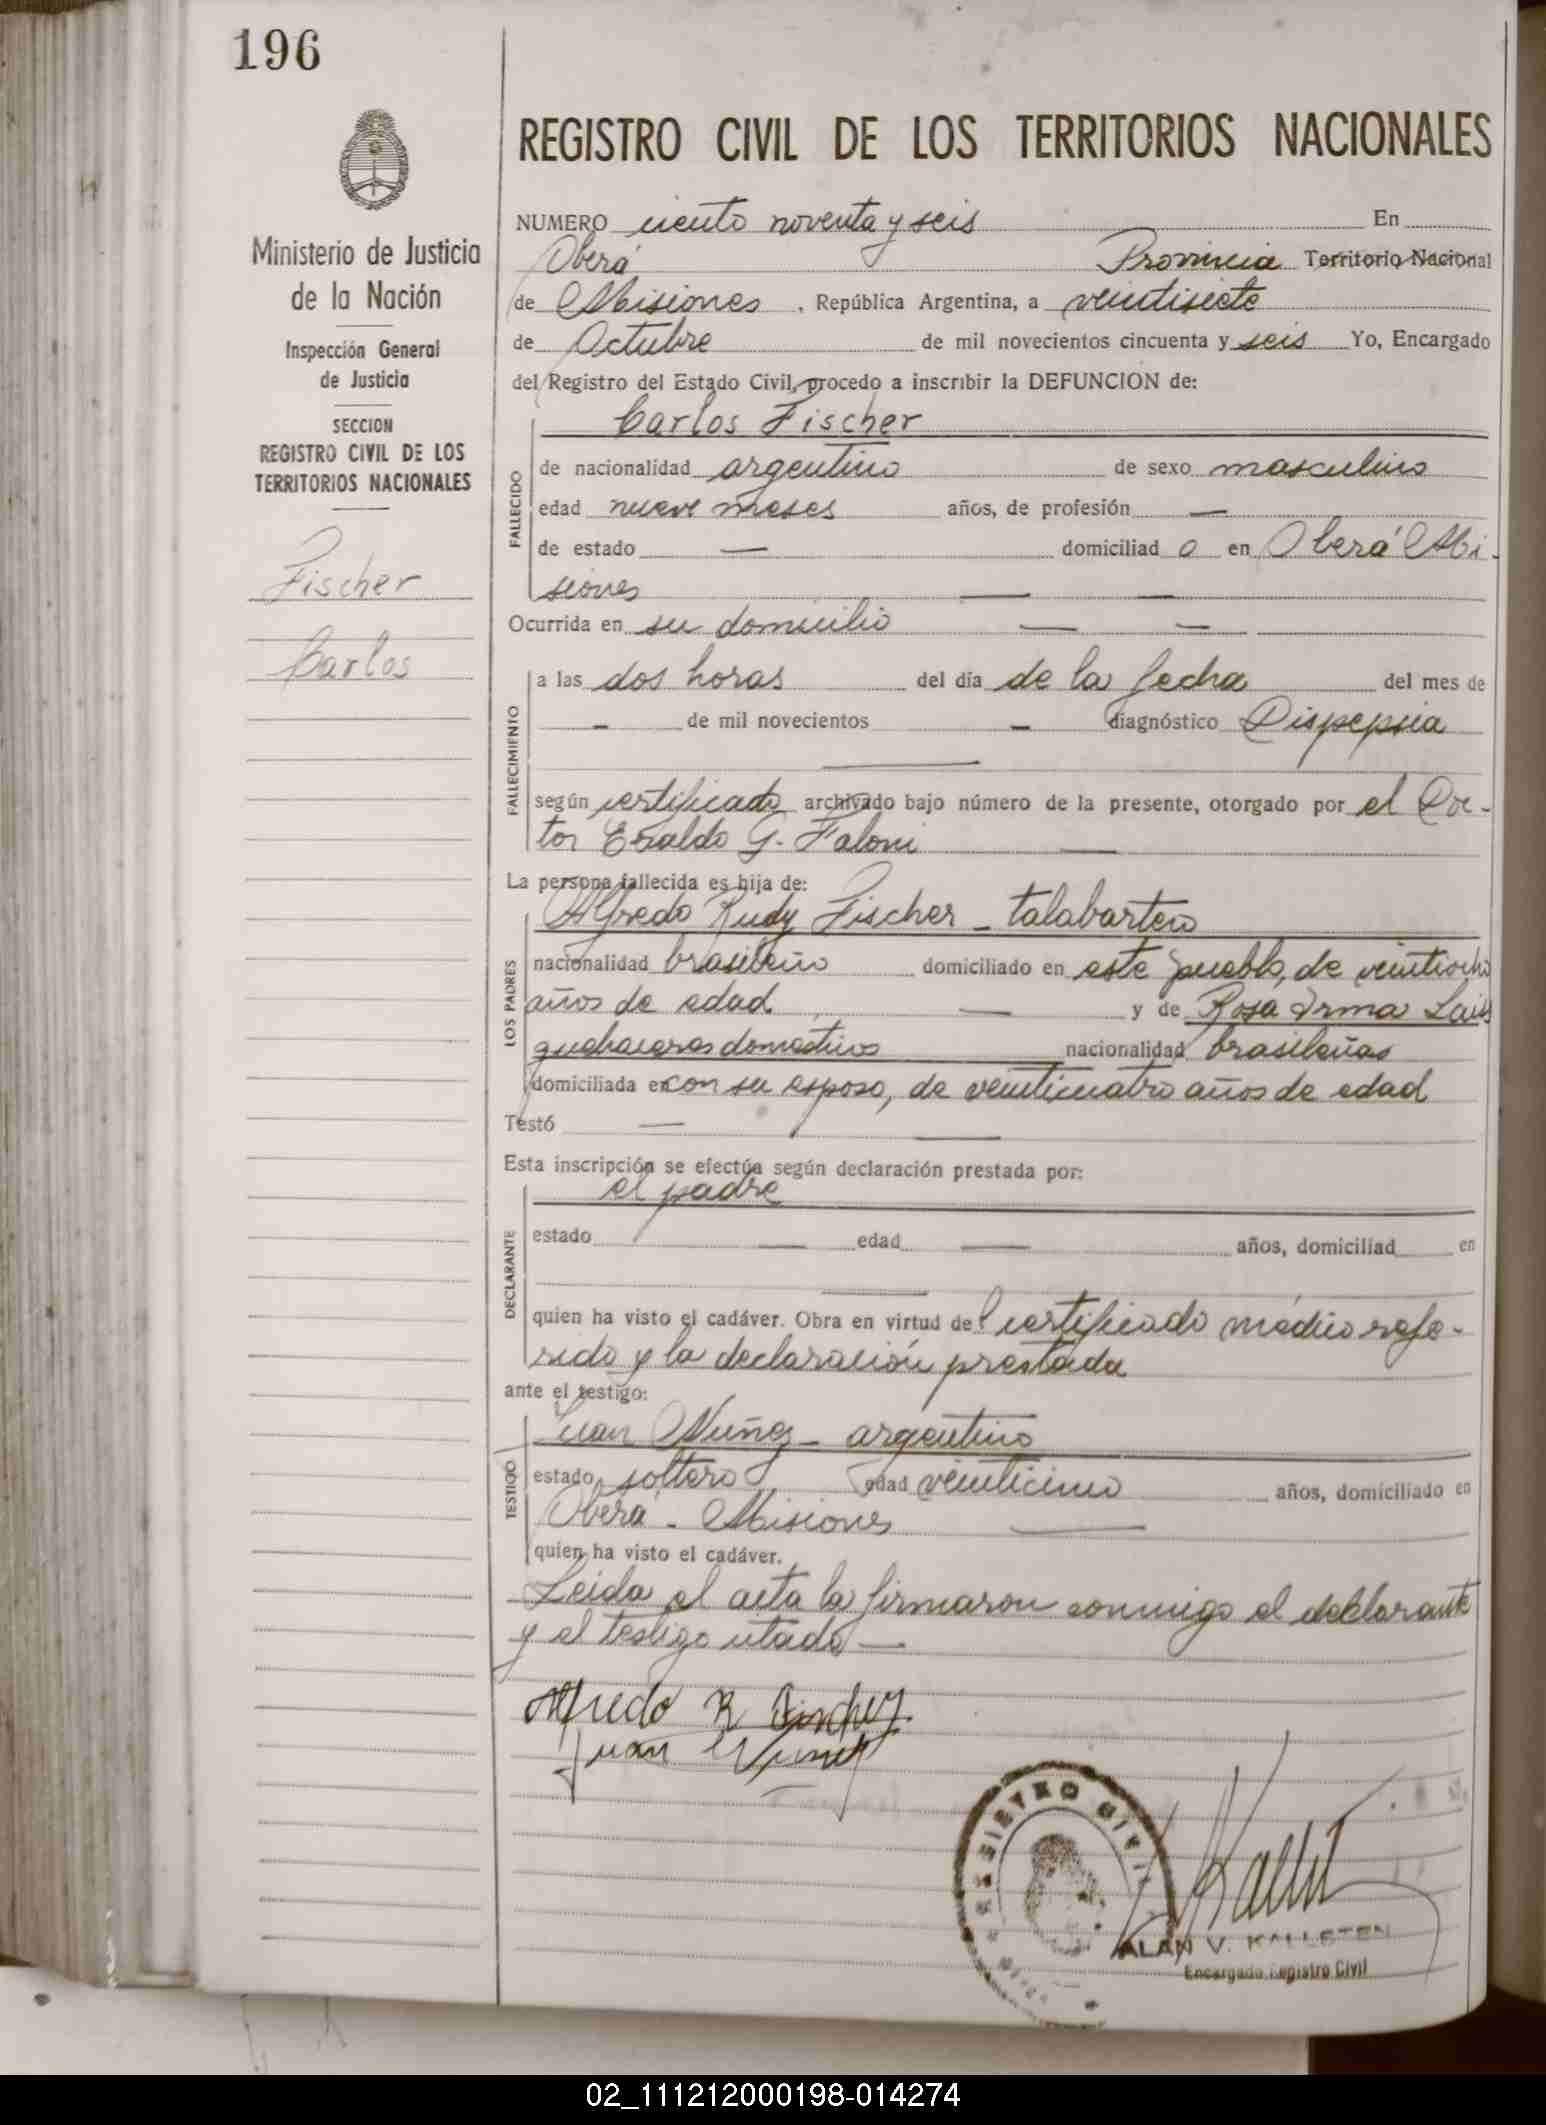 196
REGISTRO CIVIL DE LOS TERRITORIOS NACIONALES
Ministerio de Justicia
de la Nación
Inspección General
de Justicia
SECCION
REGISTRO CIVIL DE LOS
TERRITORIOS NACIONALES
Fischer
Carlos
NUMERO ciento noventa y seis En
Oberá Provincia Territorio Nacional
de Misiones, República Argentina, a veintisiete
de Octubre de mil novecientos cincuenta y seis Yo, Encargado
del Registro del Estado Civil, procedo a inscribir la DEFUNCION de:
Carlos Fischer
FALLECIDO
de nacionalidad argentino de sexo masculino
edad nueve meses años, de profesión —
de estado — domiciliad o en Oberá Mi-
siones — —
Ocurrida en su domicilio — —
FALLECIMIENTO
a las dos horas del día de la fecha del mes de
— de mil novecientos — diagnóstico Dispepsia
—
según certificado archivado bajo número de la presente, otorgado por el Doc-
tor Eraldo G. Faloni —
La persona fallecida es hija de:
LOS PADRES
Alfredo Rudy Fischer - talabartero
nacionalidad brasileño domiciliado en este pueblo, de veintiocho
años de edad — y de Rosa Irma
quehaceres domesticos nacionalidad brasileñas
domiciliada en con su esposo, de veinticuatro años de edad
Testó — —
Esta inscripción se efectúa según declaración prestada por:
DECLARANTE
el padre
estado — edad — años, domiciliad en
—
quien ha visto el cadáver. Obra en virtud del certificado médico refe-
rido y la declaración prestada
ante el testigo:
TESTIGO
Juan Nuñez - argentino
estado soltero edad veinticinco años, domiciliado en
Oberá - Misiones —
quien ha visto el cadáver.
Leida el acta la firmaron conmigo el declarante
y el testigo citado —
Alfredo R Fischer
Juan Nuñez
REGISTRO CIVIL
Kallst
ALAN V. KALLSTEN
Encargado Registro Civil
02_111212000198-014274